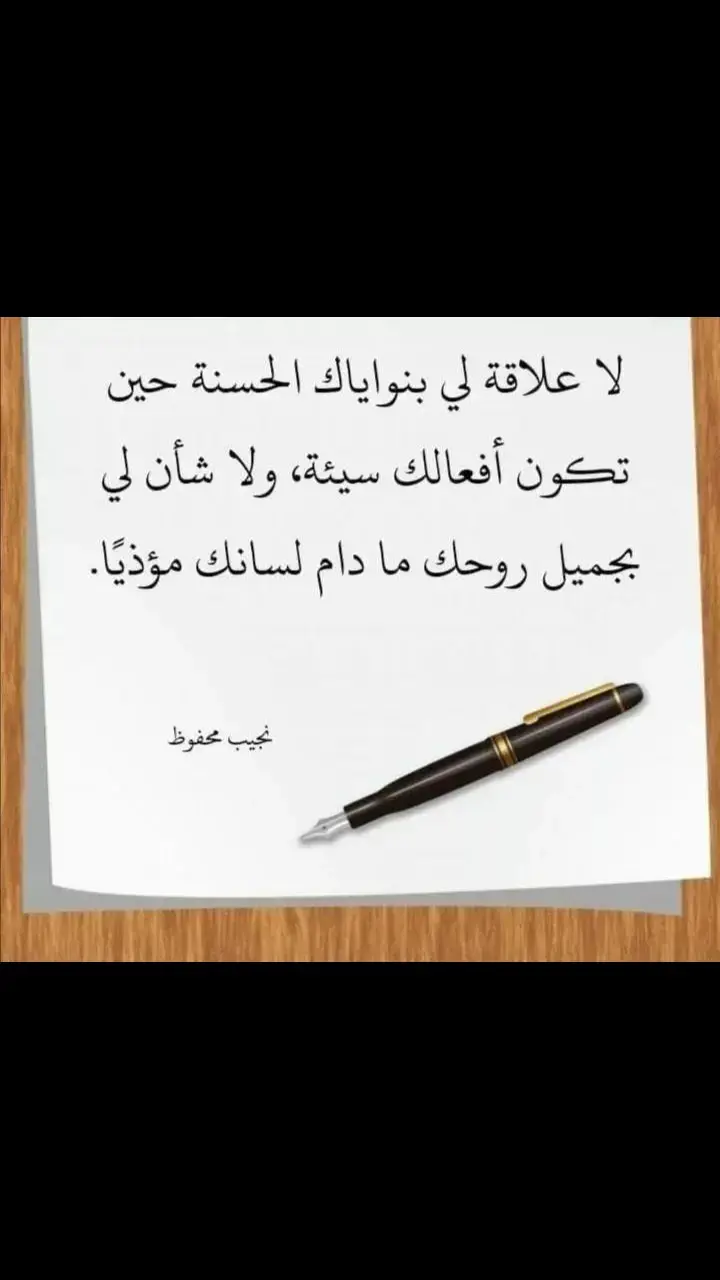 لا علاقة لي بنواياك الحسنة حين
تكون أفعالك سيئة، ولا شأن لي
بجميل روحك ما دام لسانك مؤذيًا.
نجيب محفوظ